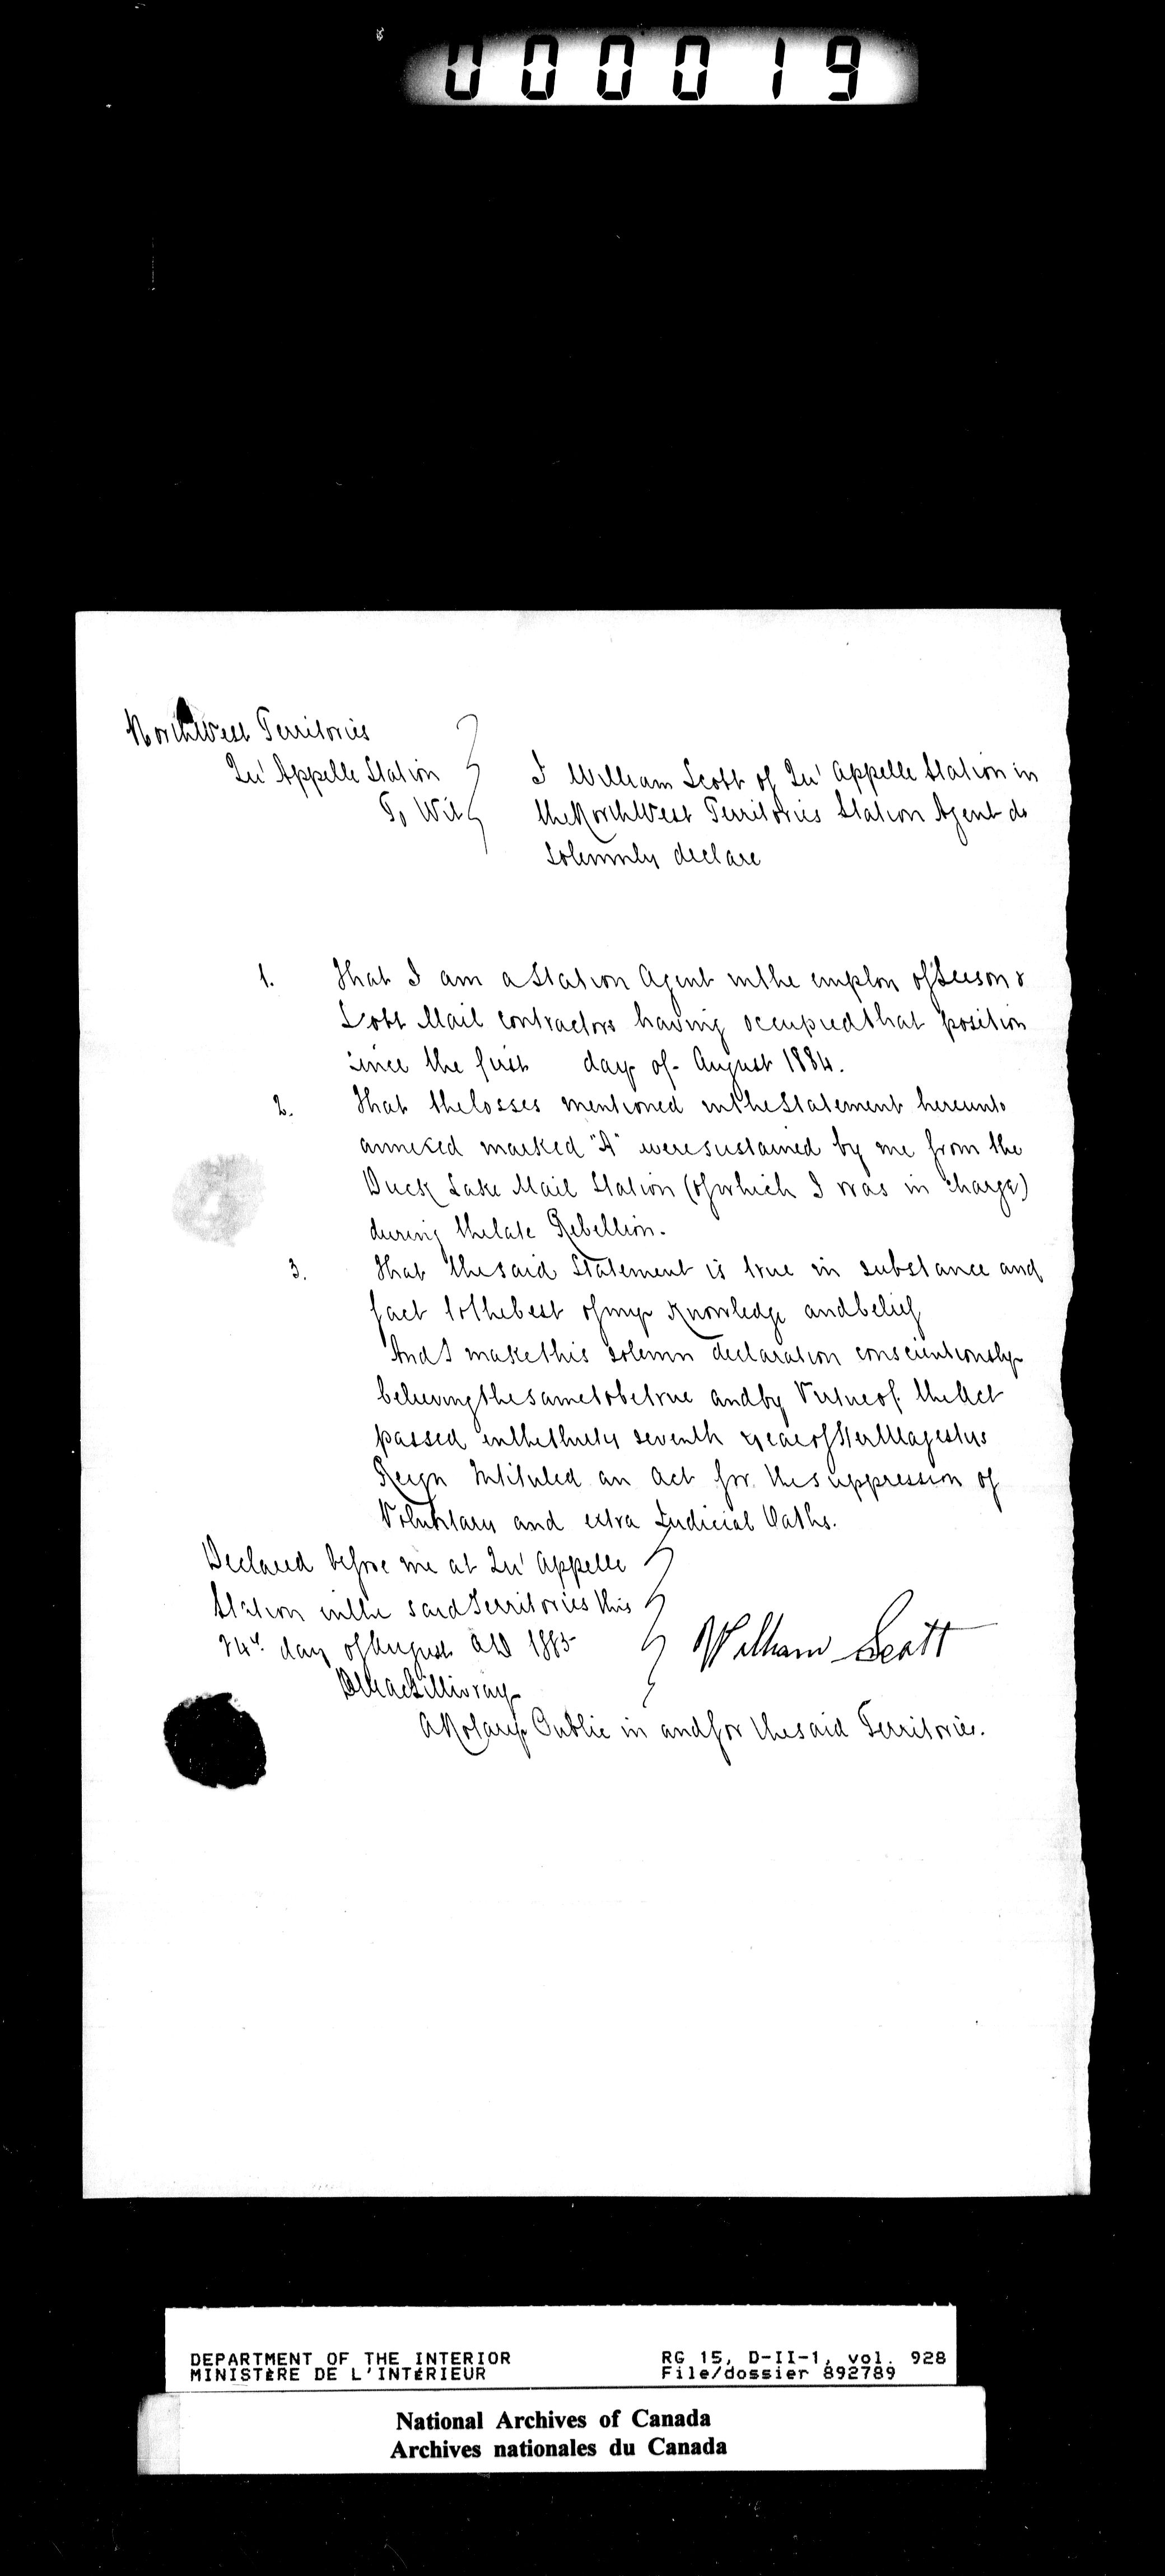 000019
NorthWest Territories
Qu'Appelle Station
To Wit
I William Scott of Qu'Appelle Station in
the NorthWest Territories Station Agent do
solemnly declare
1. That I am a Station Agent in the employ of Leeson &
Scott Mail contractors having occupied that position
since the first day of August 1884.
2. That the losses mentioned in the Statement hereunto
annexed marked "A" were sustained by me from the
Duck Lake Mail Station (of which I was in charge)
during the late Rebellion.
3. That the said Statement is true in substance and
fact to the best of my Knowledge and belief
And I make this solemn declaration conscientiously
believing the same to be true and by Virtue of the Act
passed in the thirty seventh year of Her Majestys
Reign Intituled an Act for the suppression of
Voluntary and extra Judicial Oaths.
Declared before me at Qu'Appelle
Station in the said Territories this
24th day of August AD 1885
William Scott
MacGillivray
A Notary Public in and for the said Territories.
DEPARTMENT OF THE INTERIOR RG 15, D-II-1, vol. 928
MINISTÈRE DE L'INTÉRIEUR File/dossier 892789
National Archives of Canada
Archives nationales du Canada